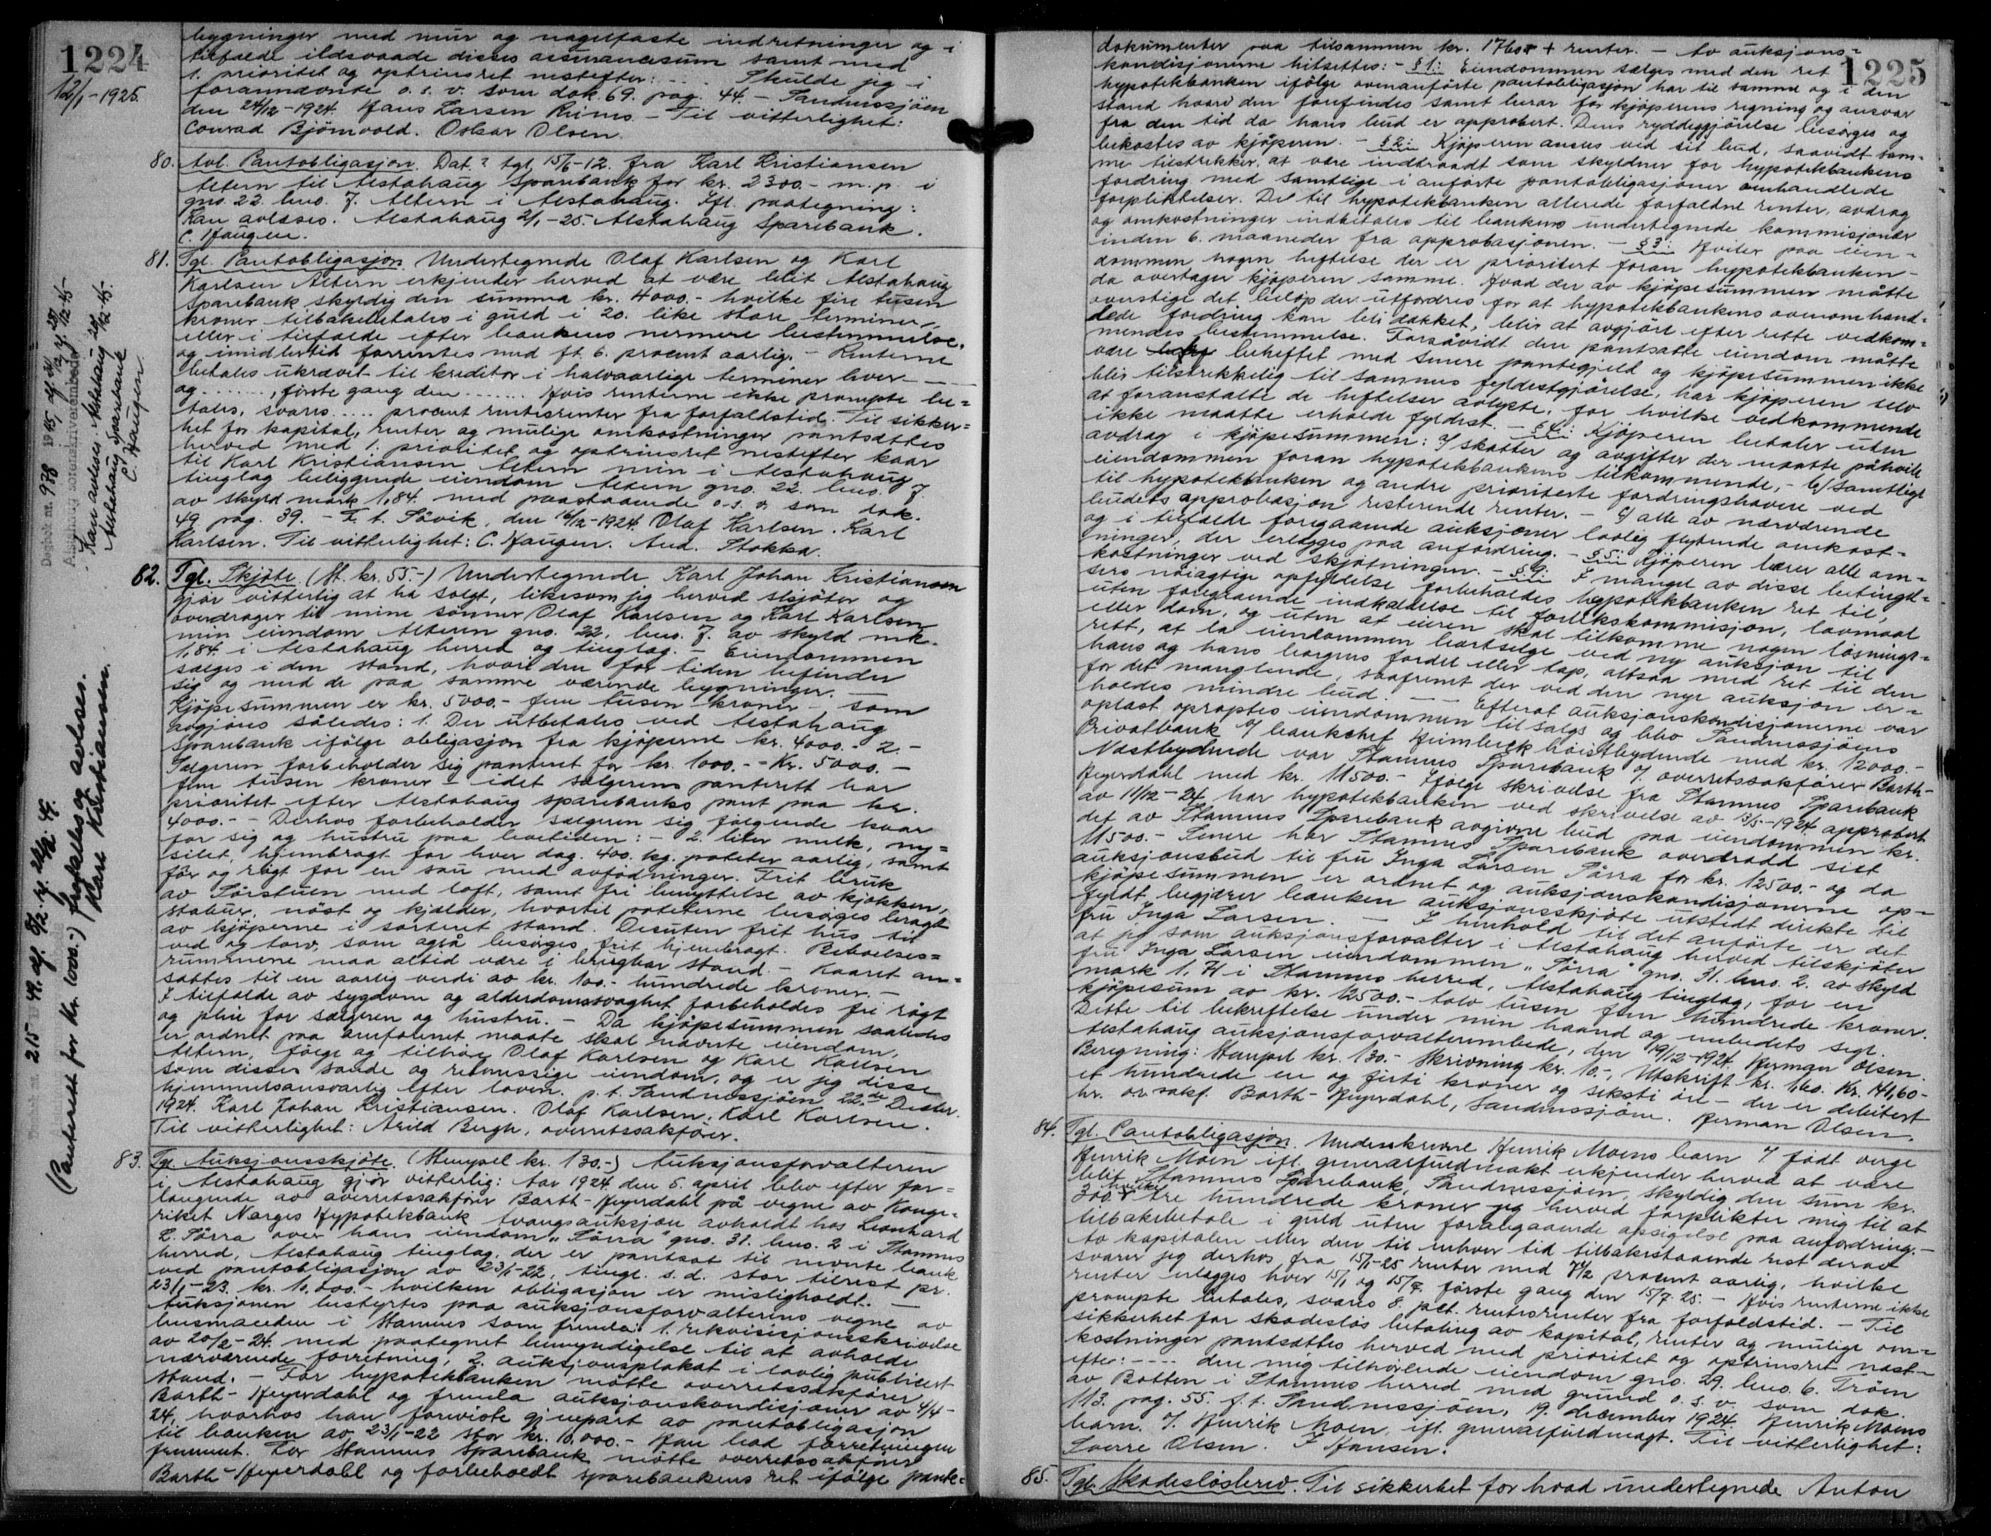 1224
12/1-1925.
bygninger med mur og nagelfaste indretninger og i
tilfælde ildsvaade disses assurancesum samt med
1. prioritet og optrinsret nestefter: ... Skulde jeg i
forannævnte o.s.v. som dok. 69. pag. 44. - Sandnessjøen
den 24/12-1924. Hans Larsen Til vitterlighet:
Conrad Bjørnvold. Oskar Olsen.
80. Avl. Pantobligasjon. Dat.? tgl. 15/6-12. fra Karl Kristiansen
Altern til Alstahaug Sparebank for kr. 2300.- m.p. i
gno. 22. bno. 7. Altern i Alstahaug. Ifl. paategning:
Kan avleses. Alstahaug 2/1-25. Alstahaug Sparebank.
C. Haugen.
81. Tgl. Pantobligasjon. Undertegnede Olaf Karlsen og Karl
Karlsen Altern erkjender herved at være blit Alstahaug
Sparebank skyldig den summa kr. 4000.- hvilke fire tusen
kroner tilbakebetales i guld i 20. like store terminer,
eller i tilfælde efter bankens nermere bestemmelse,
og imidlertid forrentes med ft. 6. procent aarlig. - Renterne
betales ukrævet til kreditor i halvaarlige terminer hver - -
og ......, første gang den ...... Hvis renterne ikke prompte be=
tales, svares ..... procent rentersrenter fra forfaldstid. Til sikker=
het for kapital, renter og mulige omkostninger pantsættes
herved med 1. prioritet og optrinsret nestefter kaar
til Karl Kristiansen Altern min i Alstahaug
tinglag beliggende eiendom Altern gno. 22. bno. 7
av skyld mark 1,84. med paastaaende o.s.v. som dok.
49 pag. 39. - F. t. Søvik, den 16/12-1924. Olaf Karlsen. Karl
Karlsen. Til vitterlighet: C. Haugen. And. Stokka.
Dagbok nr. 978 1945
Alstahaug sorenskriverembede
Kan avleses Alstahaug
Alstahaug Sparebank
C. Haugen
82. Tgl. Skjøte. (St. kr. 55.-) Undertegnede Karl Johan Kristiansen
gjør vitterlig at ha solgt, likesom jeg herved skjøter og
overdrager til mine sønner Olaf Karlsen og Karl Karlsen
min eiendom Altern gno. 22. bno. 7. av skyld mk.
1,84 i Alstahaug herred og tinglag. - Eiendommen
sælges i den stand, hvori den for tiden befinder
sig og med de paa samme værende bygninger. -
Kjøpesummen er kr. 5000.- fem tusen kroner - som
avgjøres således: 1. Der utbetales ved Alstahaug
sparebank ifølge obligasjon fra kjøperne kr. 4000.- 2.-
Sælgeren forbeholder sig panteret for kr. 1000.- - Kr. 5000.-
fem tusen kroner - idet sælgerens panterett har
prioritet efter Alstahaug sparebanks pant paa kr.
4000.- - Derhos forbeholder sælgeren sig følgende kaar
for sig og hustru paa levetiden: - 2. liter melk, ny=
silet, hjembragt for hver dag. 400. kg. poteter aarlig, samt
før og røgt for en sau med avfødninger. Frit bruk
av Sørstuen med loft, samt fri benyttelse av kjøkken,
stabur, nøst og kjælder, hvortil poteterne besørges bragt
av kjøperne i sorteret stand. Desuten frit hus til
ved og torv, som også besørges frit hjembragt. Beboelses=
rummene maa altid være i brugbar stand. - Kaaret an=
sættes til en aarlig verdi av kr. 100.- hundrede kroner. -
I tilfælde av sygdom og alderdomssvaghet forbeholdes fri røgt
og pleie for sælgeren og hustru. - Da kjøpesummen saaledes
er ordnet paa anførte maate skal nævnte eiendom,
Altern, følge og tilhøre Olaf Karlsen og Karl Karlsen
som disses sande og retmessige eiendom, og er jeg disse
hjemmelsansvarlig efter loven. p.t. Sandnessjøen 22.de Decbr.
1924. Karl Johan Kristiansen. Olaf Karlsen. Karl Karlsen.
Til vitterlighet: Arild Bergh, overretssakfører.
(Panterett for Kr. 1000.-) frafalles og avleses.
Karl Kristiansen.
83. Tgl. Auksjonsskjøte. (Stempel kr. 130.-) Auksjonsforvalteren
i Alstahaug gjør vitterlig: Aar 1924 den 5. april blev efter for=
langende av overretssakfører Barth-Heyerdahl på vegne av Konge=
riket Norges Hypotekbank tvangsauksjon avholdt hos Leonhard
L. Sørra over hans eiendom "Sørra" gno. 31. bno. 2 i Stamnes
herred, Alstahaug tinglag, der er pantsat til nevnte bank
ved pantobligasjon av 23/1-22, tingl. s.d. stor tilrest pr.
23/1-23. kr. 10.000.- hvilken obligasjon er misligholdt. -
Auksjonen bestyrtes paa auksjonsforvalterens vegne av
lensmanden i Stamnes som fremla: 1. rekvisisjonsskrivelse
av 20/2-24. med paategnet bemyndigelse til at avholde
nærværende forretning, 2. auksjonsplakat i lovlig publicert
stand. - For hypotekbanken møtte overretssakfører
Barth-Heyerdahl og fremla auksjonskondisjoner av 4/4-
24, hvorhos han foreviste gjenpart av pantobligasjon
til banken av 23/1-22 stor kr. 10.000.- Han bad forretningen
fremmet. For Stamnes Sparebank møtte overretssakfører
Barth-Heyerdahl og forbeholdt sparebankens ret ifølge pante=
1225
dokumenter paa tilsammen kr. 1760.- + renter. - Av auksjons=
kondisjonerne hitsettes: - § 1: Eiendommen sælges med den ret
hypotekbanken ifølge ovenanførte pantobligasjon har til samme og i den
stand hvori den forefindes samt henar for kjøperens regning og ansvar
fra den tid da hans bud er approbert. Dens ryddeggjørelse besørges og
bekostes av kjøperen. - § 2: Kjøperen ansees ved sit bud, saavidt sam=
me tilstrekker, at være indtraadt som skyldner for hypotekbankens
fordring med samtlige i anførte pantobligasjoner omhandlede
forpliktelser. De til hypotekbanken allerede forfaldne renter, avdrag
og omkostninger indbetales til bankens undertegnede kommisjonær
inden 6. maaneder fra approbasjonen. - § 3: Hviler paa eien=
dommen nogen heftelse der er prioritert foran hypotekbanken -
da overtager kjøperen samme. Hvad der av kjøpesummen måtte
overstige det beløp der utfordres for at hypotekbankens ovenomhand=
lede fordring kan bli dækket, blir at avgjøre efter rette vedkom=
mendes bestemmelse. Forsåvidt den pantsatte eiendom måtte
være beheftet med senere pantegjeld og kjøpesummen ikke
blir tilstrekkelig til sammes fyldestgjørelse, har kjøperen selv
at foranstalte de heftelser avlyste, for hvilke vedkommende
ikke maatte erholde fyldest. - § 4: Kjøperen betaler uten
avdrag i kjøpesummen: a/ skatter og avgifter der maatte påhvile
eiendommen foran hypotekbankens tilkommende, - b/ samtlige
til hypotekbanken og andre prioriterte fordringshavere ved
budets approbasjon resterende renter. - c/ alle av nærværende
og i tilfælde foregaaende auksjoner lovlig flytende omkost=
ninger, der erlegges paa anfordring. - § 5: Kjøperen bærer alle om=
kostninger ved skjøtningen. - § 9: I mangel av disse betingel=
sers nøiagtige opfyldelse forbeholdes hypotekbanken ret til,
uten foregaaende indkaldelse til forlikskommisjon, lavmaal
eller dom, og uten at eieren skal tilkomme nogen løsnings=
rett, at la eiendommen bortselge ved ny auksjon til
hans og hans borgens fordel eller tap, altsaa med ret til den
for det manglende, saafremt der ved den nye auksjon er=
holdes mindre bud. - - Efterat auksjonskondisjonerne var
oplæst opraptes eiendommen til salgs og blev Sandnessjøens
Privatbank v/ bankchef Heimbeck høistbydende med kr. 12000.-
Næstbydende var Stamnes Sparebank v/ overretssakfører Barth-
Heyerdahl med kr. 11500.- Ifølge skrivelse fra Stamnes Sparebank
av 11/12-24 har hypotekbanken ved skrivelse av 13/5-1924 approbert
det av Stamnes Sparebank avgivne bud paa eiendommen kr.
11500.- Senere har Stamnes Sparebank overdradd sit
auksjonsbud til fru Inga Larsen Sørra for kr. 12500.- og da
kjøpesummen er ordnet og auksjonskondisjonerne op=
fyldt, begjærer banken auksjonsskjøte utstedt direkte til
fru Inga Larsen. - I henhold til det anførte er det
at jeg som auksjonsforvalter i Alstahaug herved tilskjøter
fru Inga Larsen eiendommen "Sørra" gno. 31. bno. 2. av skyld
mark 1,71 i Stamnes herred, Alstahaug tinglag, for en
kjøpesum av kr. 12500.- tolv tusen fem hundrede kroner.
Dette til bekreftelse under min haand og embedets segl.
Alstahaug auksjonsforvalterembede, den 19/12-1924. Herman Olsen.
Beregning: Stempel kr. 130.- Skrivning kr. 10.-, Utskrift kr. 1,60. Kr. 141,60-
et hundrede en og førti kroner og seksti øre - der er debitert
hr. o.r.sakf. Barth-Heyerdahl, Sandnessjøen. Herman Olsen.
84. Tgl. Pantobligasjon. Underskrevne Henrik Moens barn v/ født verge
Henrik Moen ifl. generalfuldmakt erkjender herved at være
blit Stamnes Sparebank, Sandnessjøen, skyldig den sum kr.
300.- tre hundrede kroner hvilke jeg herved forplikter mig til at
tilbakebetale i guld uten foregaaende opsigelse paa anfordring. -
Av kapitalen eller den til enhver tid tilbakestaaende rest derav
svarer jeg derhos fra 15/1-25 renter med 7 1/2 procent aarlig, hvilke
renter erlægges hver 15/1 og 15/7. første gang den 15/7.25. - Hvis renterne ikke
prompte betales, svares 8. pct. rentersrenter fra forfaldstid. - Til
sikkerhet for skadesløs betaling av kapital, renter og mulige om=
kostninger pantsættes herved med prioritet og optrinsret næst=
efter: - - - - den mig tilhørende eiendom gno. 29. bno. 6. Trøen
av Botten i Stamnes herred med grund o.s.v. som dok.
113. pag. 55. p.t. Sandnessjøen, 19. december 1924. Henrik Moens
barn. v. Henrik Moen, ifl. generalfuldmagt. Til vitterlighet:
Sverre Olsen. F. Hansen.
85. Tgl. Skadesløsbrev. Til sikkerhet for hvad undertegnede Anton